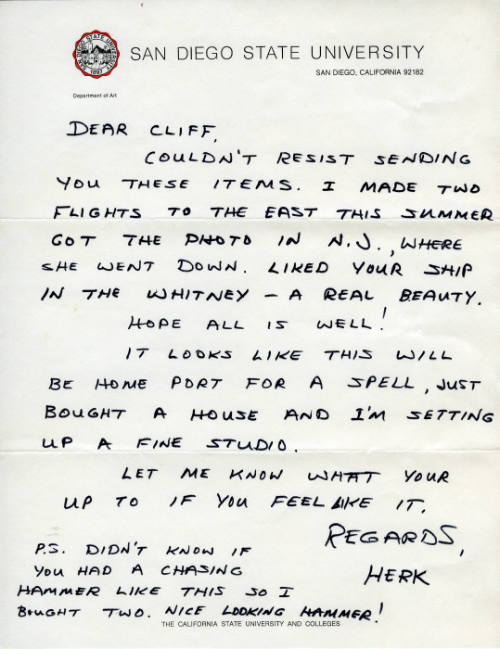 SAN DIEGO STATE UNIVERSITY
SAN DIEGO STATE UNIVERSITY
1897
SAN DIEGO, CALIFORNIA 92182
Department of Art
DEAR CLIFF,
COULDN'T RESIST SENDING
YOU THESE ITEMS. I MADE TWO
FLIGHTS TO THE EAST THIS SUMMER
GOT THE PHOTO IN N.J., WHERE
SHE WENT DOWN. LIKED YOUR SHIP
IN THE WHITNEY — A REAL BEAUTY.
HOPE ALL IS WELL!
IT LOOKS LIKE THIS WILL
BE HOME PORT FOR A SPELL, JUST
BOUGHT A HOUSE AND I'M SETTING
UP A FINE STUDIO.
LET ME KNOW WHAT YOUR
UP TO IF YOU FEEL LIKE IT.
REGARDS,
HERK
P.S. DIDN'T KNOW IF
YOU HAD A CHASING
HAMMER LIKE THIS SO I
BOUGHT TWO. NICE LOOKING HAMMER!
THE CALIFORNIA STATE UNIVERSITY AND COLLEGES